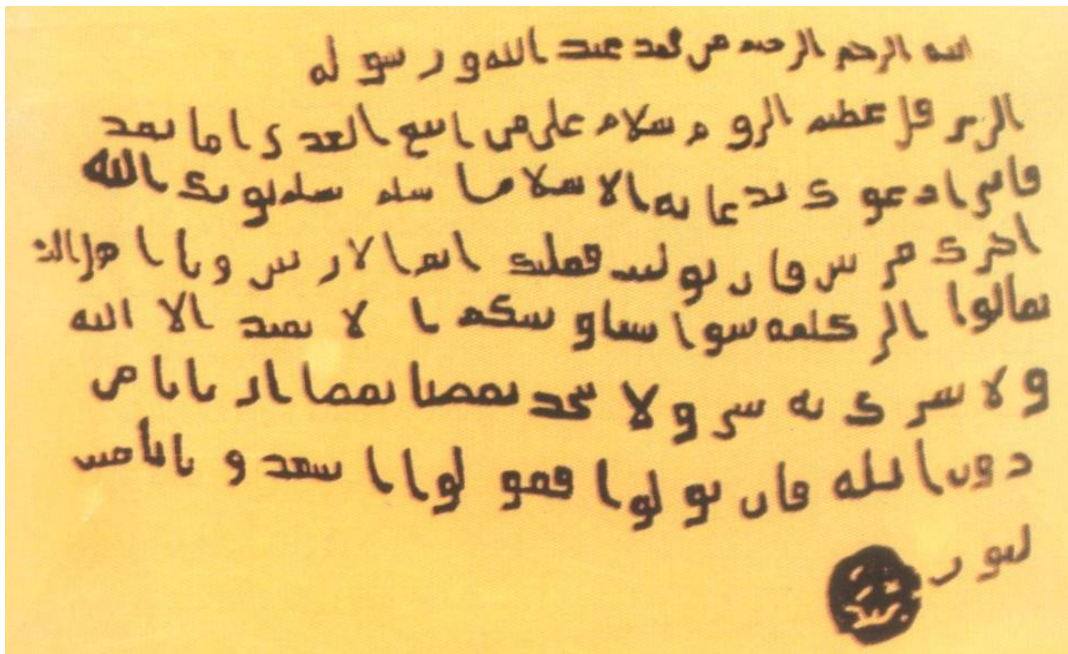 الله الرحمن الرحيم من محمد عبد الله ورسوله
الى هرقل عظيم الروم سلام على من اتبع الهدى اما بعد
فانى ادعوك بدعاية الاسلام اسلم تسلم يوتك الله
اجرك مرتين فان توليت فعليك اثم الاريسين ويا اهل الكتب
تعالوا الى كلمة سوا بيننا وبينكم الا نعبد الا الله
ولا نشرك به شيا ولا يتخذ بعضنا بعضا اربابا من
دون الله فان تولوا فقولوا اشهدوا بانا مس
لمون